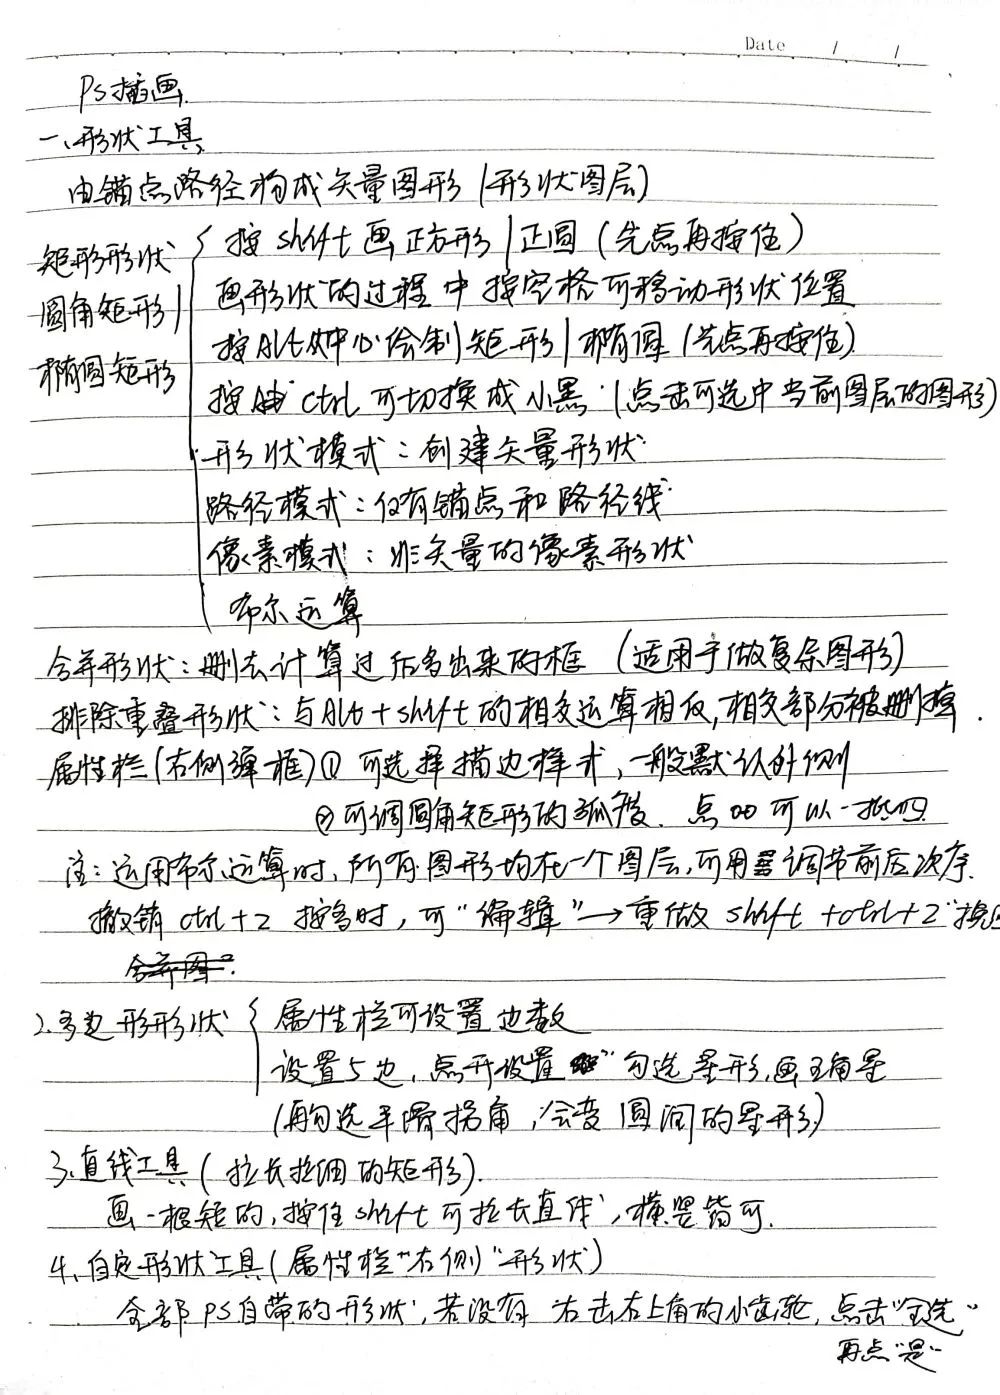 Date / /
Ps插画
一、形状工具
由锚点路径构成矢量图形(形状图层)
矩形形状
圆角矩形
椭圆矩形
按shift画正方形|正圆(先点再按住)
画形状的过程中按空格可移动形状位置
按Alt从中心绘制矩形|椭圆(先点再按住)
按ctrl可切换成小黑(点击可选中当前图层的图形)
形状模式:创建矢量形状
路径模式:仅有锚点和路径线
像素模式:非矢量的像素形状
布尔运算
合并形状:删去计算过后多出来的框(适用于做复杂图形)
排除重叠形状:与Alt+shift的相交运算相反,相交部分被删掉.
属性栏(右侧弹框)① 可选择描边样式,一般默认外侧
②可调圆角矩形的弧度.点 可以一拖四
注:运用布尔运算时,所有图形均在一个图层,可用 调节前后次序.
撤销ctrl+z按多时,可“编辑”→重做shift+ctrl+z“换回
合并图
2.多边形形状 属性栏可设置边数
设置5边,点开设置 勾选星形,画五角星
(再勾选平滑拐角,会变圆润的星形)
3、直线工具(拉长拉细的矩形).
画一根短的,按住shift可拉长直线,横竖皆可.
4、自定形状工具(属性栏“右侧”形状)
全部PS自带的形状,若没有 右击右上角的小齿轮,点击“全选”
再点“是”